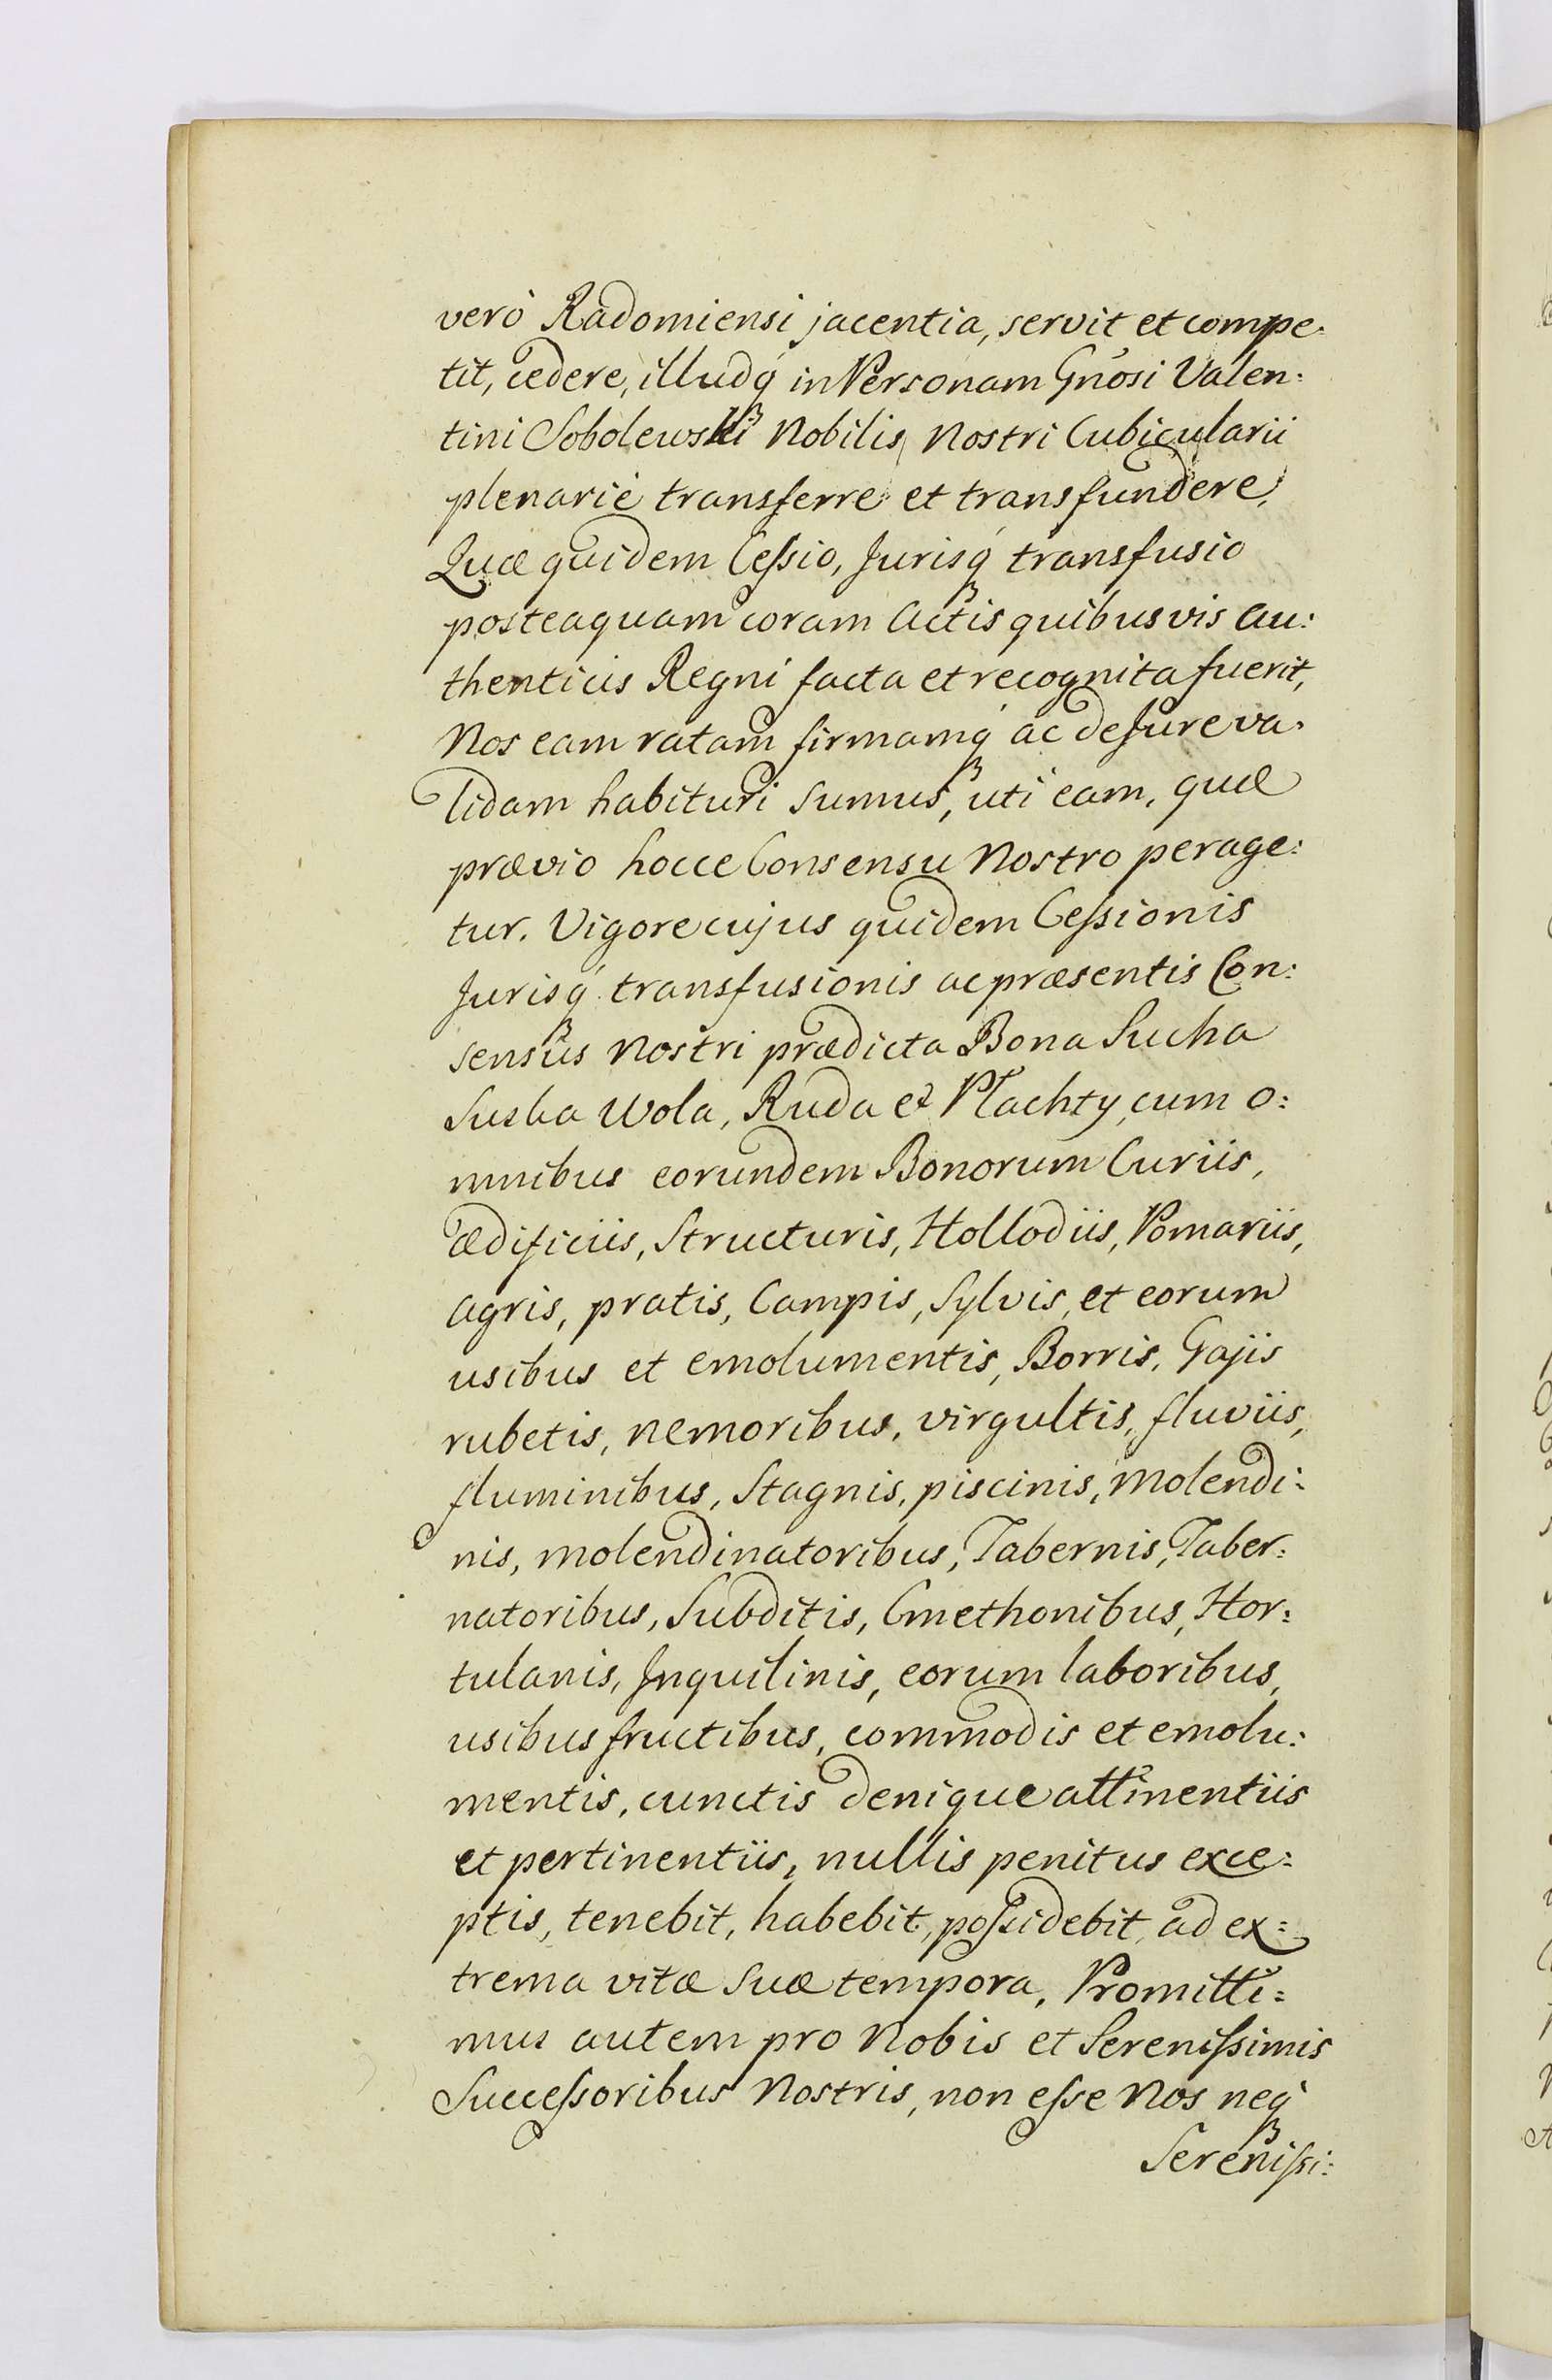 verò Radomiensi jacentia, servit et compe:
tit, cedere, illudq́ in Personam Gnosi Valen:
tini Sobolewski Nobilis Nostri Cubicularii
plenariè transferre et transfundere,
Quæ quidem Ceſsio, Jurisq́ transfusio
posteaquam coram Actis quibusvis au:
thenticis Regni facta et recognita fuerit,
Nos eam ratam firmamq́ ac de Jure va:
lidam habituri sumus, uti eam, quæ
prævio hocce Consensu Nostro perage:
tur. Vigore cujus quidem Ceſsionis
Jurisq́ transfusionis ac præsentis Con:
sensûs Nostri prædicta Bona Sucha
Suska Wola, Ruda et Plachty, cum o:
mnibus eorundem Bonorum Curiis,
ædificiis, Structuris, Hollodiis, Pomariis,
Agris, pratis, Campis, Sylvis, et eorum
usibus et emolumentis, Borris, Gajis
rubetis, nemoribus, virgultis, fluviis,
fluminibus, Stagnis, piscinis, Molendi:
nis, molendinatoribus, Tabernis, Taber:
natoribus, Subditis, Cmethonibus, Hor:
tulanis, Inquilinis, eorum laboribus,
usibus fructibus, commodis et emolu:
mentis, cunctis denique attinentiis
et pertinentiis, nullis penitus exce:
ptis, tenebit, habebit, poſsidebit, ad ex:
trema vitæ suæ tempora, Promitti:
mus autem pro Nobis et Sereniſsimis
Succeſsoribus Nostris, non eſse Nos neq́
Sereniſsi: